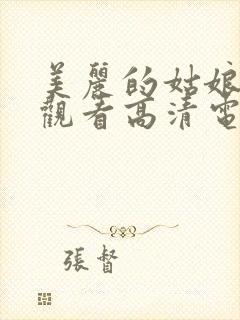 美麗的姑娘
觀看高清電
張督